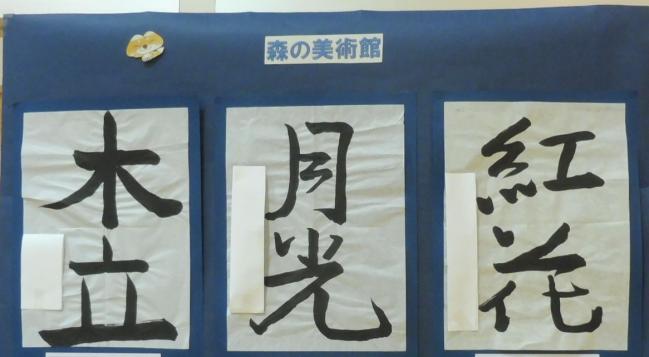 森の美術館
紅花
月光
木立